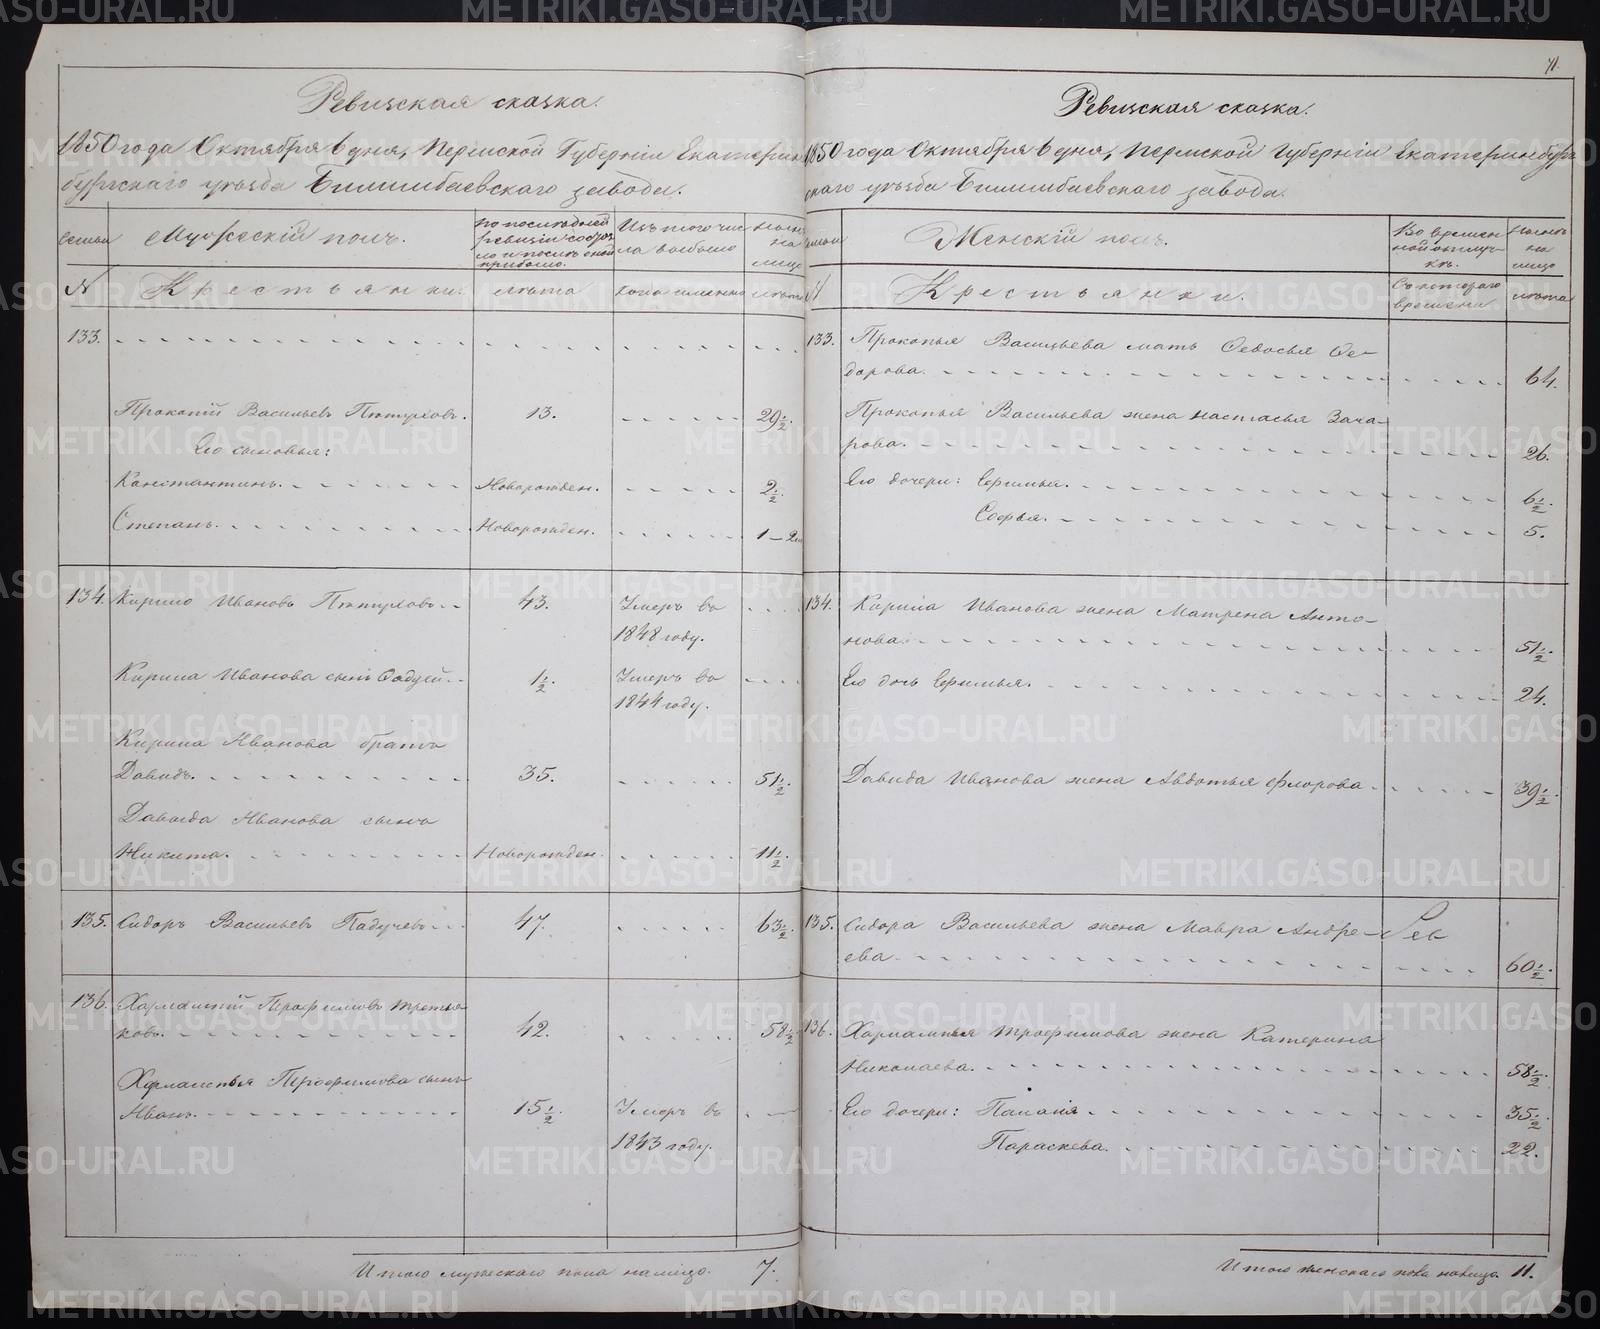 Ревизская сказка.
1850 года Октября 6 дня, Пермской Губернiи Екатерин
бургскаго уѣзда Билимбаевскаго завода.
Семьи
Мужескiй полъ.
По последней ревизiи состоя ло и после оной прибыло.
Изъ того чис ла выбыло
Нынѣ на лицо
№
Крестьяне.
Лѣта
Когда именно
Лѣта
133.
Прокопiй Васильевъ Пѣтуховъ. 13. 29½.
Его сыновья:
Констянтинъ. Новорожден. 2½.
Степанъ. Новорожден. 1
134. Кирило Ивановъ Пѣтуховъ 43. Умеръ въ
1848 году.
Кирила Иванова сынъ Фадѣй 1½. Умеръ въ
1844 году.
Кирила Иванова братъ
Давидъ. 35. 51½.
Давыда Иванова сынъ
Никита. Новорожден. 11½.
135. Сидоръ Васильевъ Падучевъ 47. 63½.
136. Харлампiй Трофимовъ Третья
ковъ. 42. 58½
Харлампья Трофимова сынъ
Иванъ. 15½. Умеръ въ
1843 году.
Итого мужескаго пола налицо. 7.
71.
Ревизская сказка.
1850 года Октября 6 дня, Пермской Губернiи Екатеринбург
скаго уѣзда Билимбаевскаго завода.
семьи
Женскiй полъ.
Во времен ной отлуч кѣ.
Нынѣ на лицо
№
Крестьянки.
Съ котораго времени
лѣта
133. Прокопья Васильева мать Федосья Фе-
дорова. 64.
Прокопья Васильева жена Настасья Заха-
рова. 26.
Его дочери: Ефимья. 6½.
Софья. 5.
134. Кирила Иванова жена Матрена Анто-
нова. 51½.
Его дочь Ефимья. 24.
Давида Иванова жена Авдотья Флорова 39½.
135. Сидора Васильева жена Мавра Андре-
ева 60½.
136. Харлампья Трофимова жена Катерина
Николаева. 58½.
Его дочери: Палагiя 35½.
Параскева. 22.
Итого женскаго пола налицо. 11.
METRIKI.GASO-URAL.RU